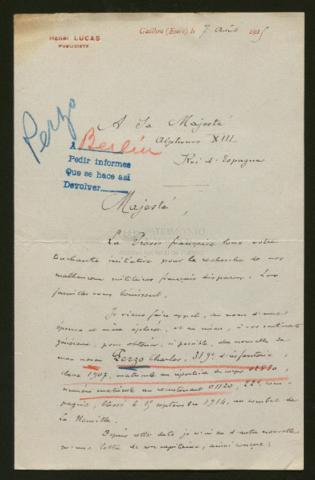 Henri LUCAS
PUBLICISTE
Gaillon (Eure) le 7 Août 1915
Perzo
A Sa Majesté
Alphonse XIII
Roi d'Espagne
A Berlin
Pedir informes
Que se hace asi
Devolver
Majesté,
La Presse française loue votre
touchante initiative pour la recherche de nos
malheureux militaires français disparus. Les
familles vous bénissent.
Je viens faire appel, au nom d'une
épouse et mère éplorée, et au mien, à vos sentiments
généreux, pour obtenir, si possible, des nouvelles de
mon neveu Perzo Charles, 319e d'infanterie,
classe 1907, matricule au répertoire du corps
numéro matricule au recrutement 01120, 22e com-
pagnie, blessé le 15 septembre 1914, au combat de
Depuis cette date je n'ai eu d'autre nouvelle
qu'une lettre de son capitaine, ainsi conçue :